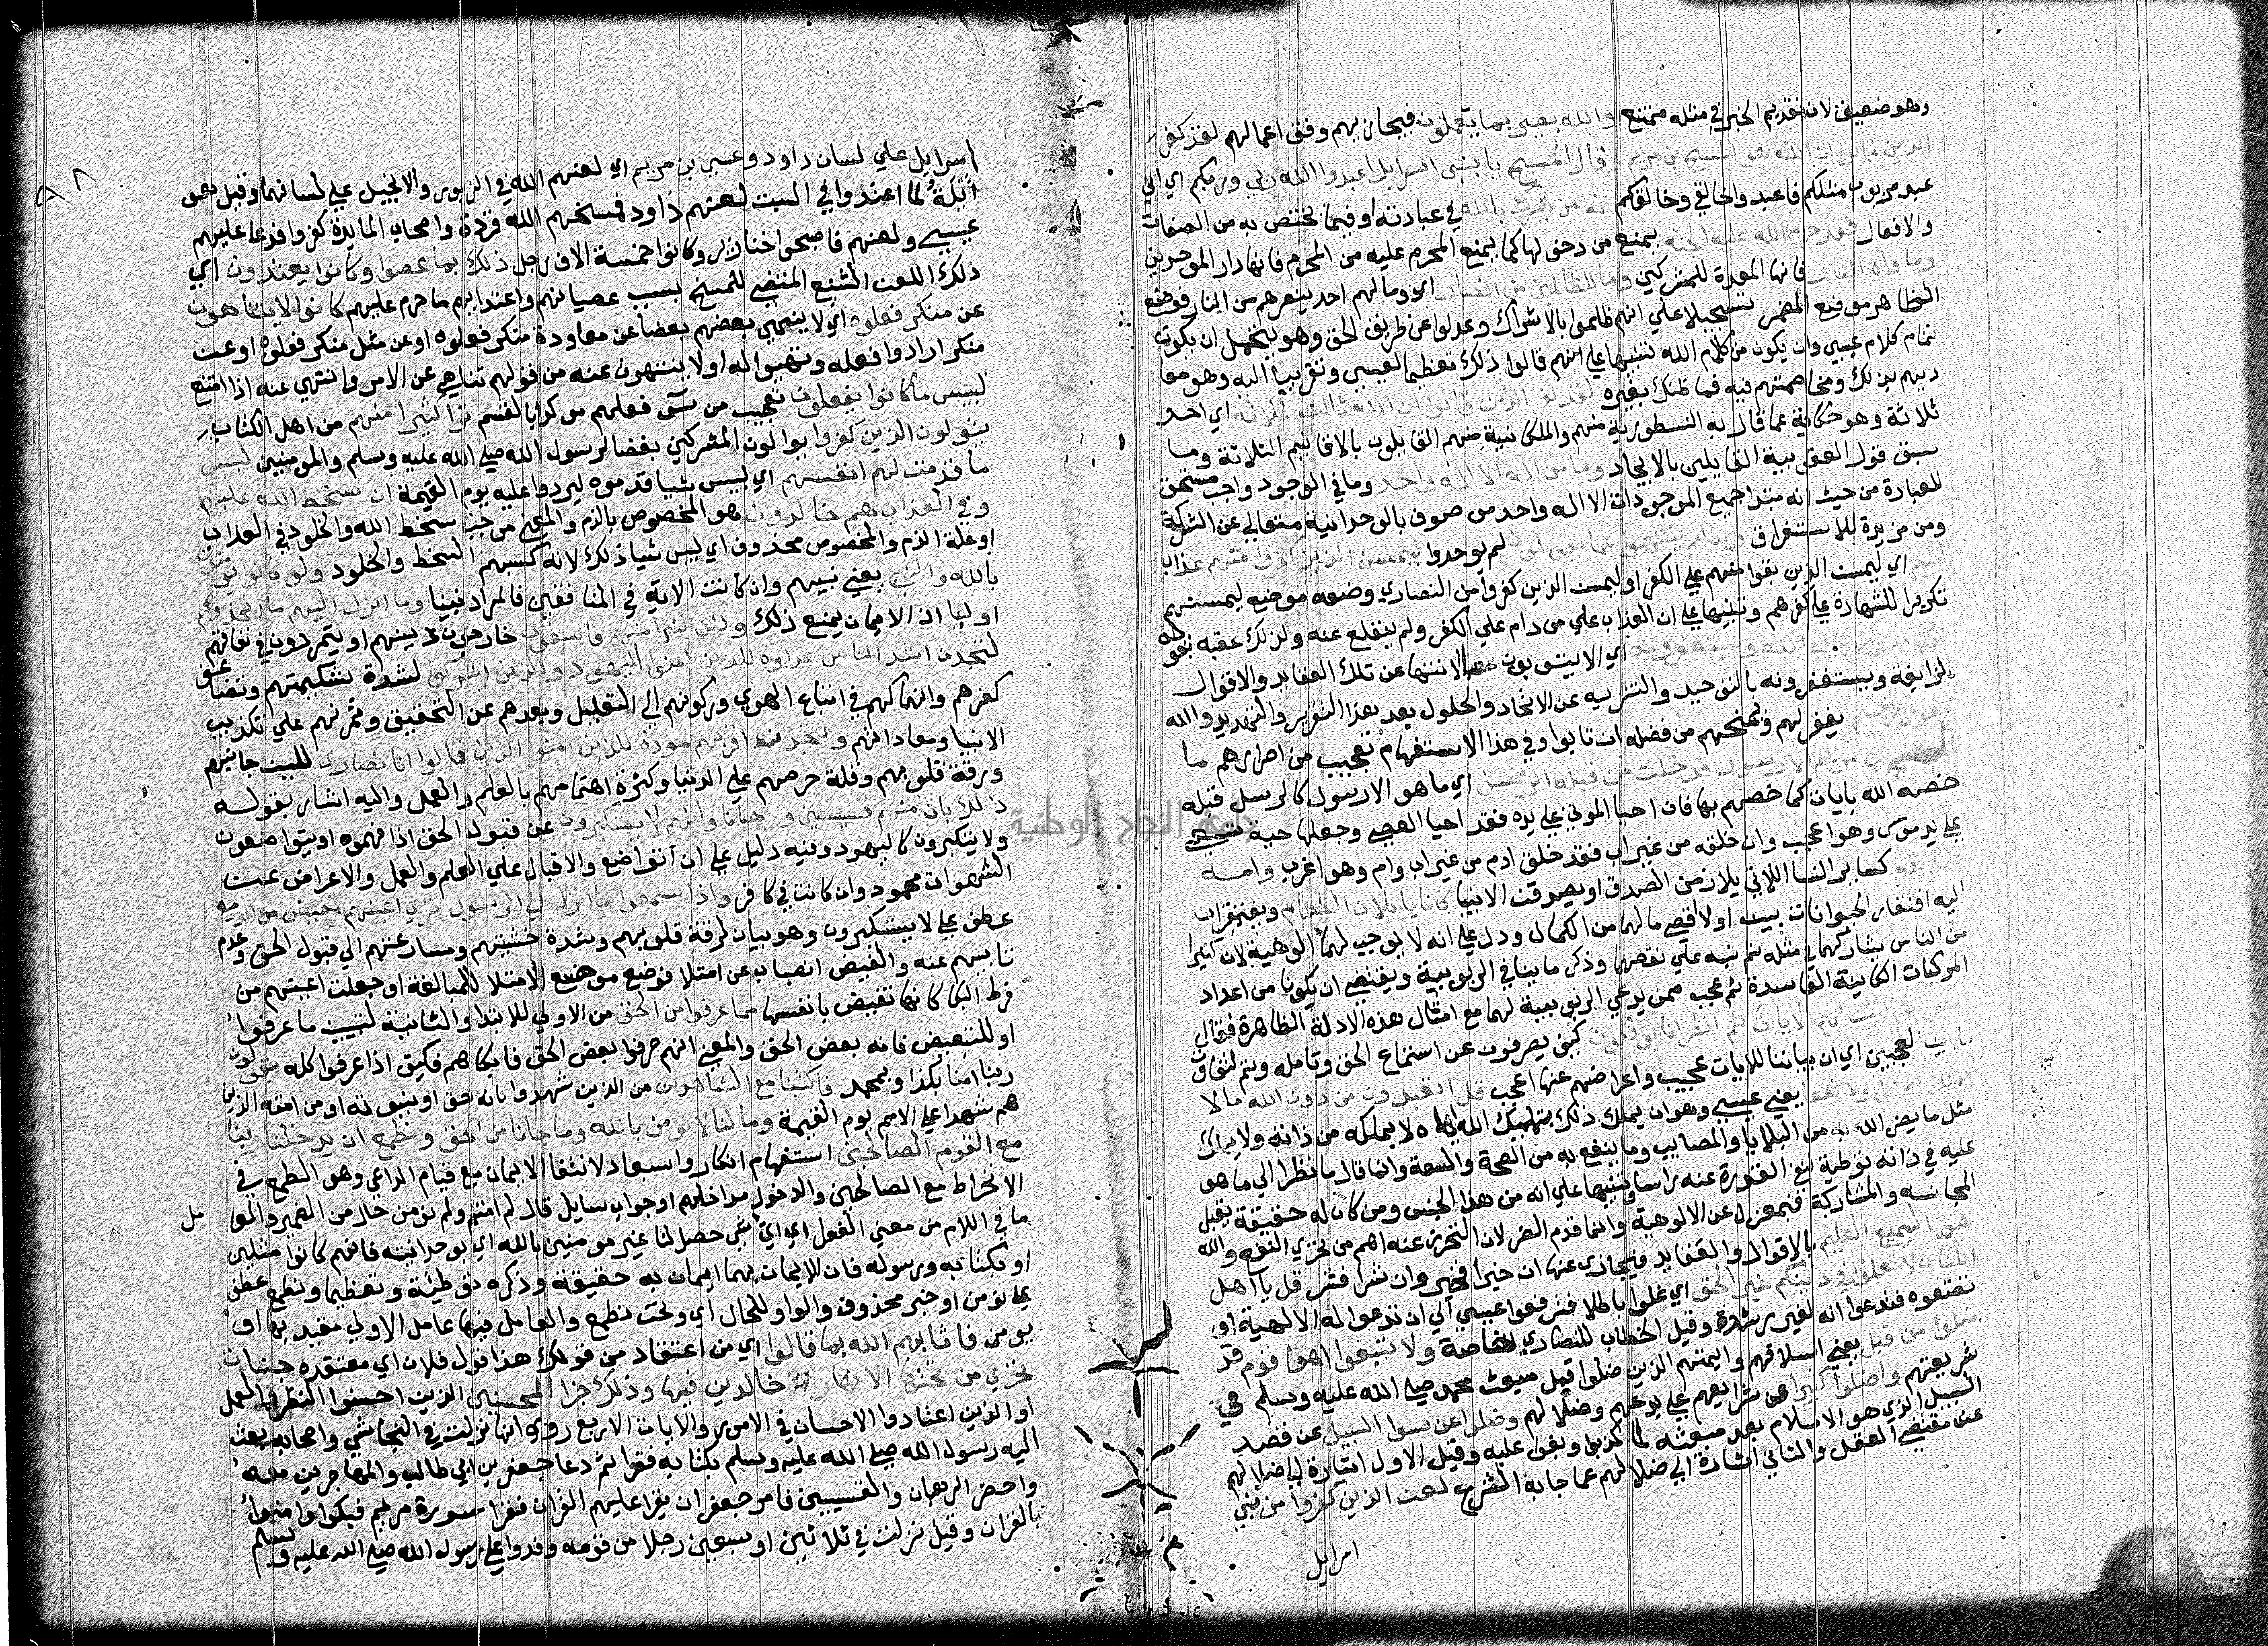 وهو ضعيف لان تقديم الخبر في مثله ممتنع والله بصير بما يعملون فيجازيهم وفق اعمالهم لقد كفر
الذين قالوا ان الله هو المسيح بن مريم وقال المسيح يا بني اسرايل اعبدوا الله ربي وربكم اي اني
عبد مربوب مثلكم فاعبدوا خالقي وخالقكم انه من يشرك بالله في عبادته او فيما يختص به من الصفات
والافعال فقد حرم الله عليه الجنة يمنع من دخولها كما يمنع المحرم عليه من المحرم فانها دار الموحدين
وماواه النار فانها المعدة للمشركين وما للظالمين من انصار اي وما لهم احد ينصرهم من النار فوضع
الظاهر موضع المضمر تسجيلا على انهم ظلموا بالاشراك وعدلوا عن طريق الحق وهو يحتمل ان يكون
تمام كلام عيسي وان يكون من كلام الله تنبيها على انهم قالوا ذلك تعظيما لعيسى وتقربا اليه وهو معا
ديهم بذلك ومخاصمتهم فيه فما ظنك بغيره لقد كفر الذين قالوا ان الله ثالث ثلاثة اي احد
ثلاثة وهو حكاية عما قال به النسطورية منهم والملكانية منهم القايلون بالاقانيم الثلاثة وما
سبق قول اليعقوبية القايلين بالاتحاد وما من اله الا اله واحد وما في الوجود واجب مستحق
للعبادة من حيث انه مبدا جميع الموجودات الا اله واحد موصوف بالوحدانية متعالي عن الشركة
ومن مزيدة للاستغراق وان لم ينتهوا عما يقولون لم يوحدوا ليمسن الذين كفروا منهم عذاب
اليم اي ليمسن الذين بقوا منهم على الكفر او ليمسن الذين كفروا من النصاري وضعه موضع ليمسنهم
تكريرا للشهادة على كفرهم وتنبيها على ان العذاب على من دام على الكفر ولم ينقلع عنه ولذلك عقبه بقوله
افلا يتوبون الى الله ويستغفرونه اي الا يتوبون بالانتها عن تلك العقايد والاقوال
الزايغة ويستغفرونه بالتوحيد والتنزيه عن الاتحاد والحلول بعد هذا التقرير والتهديد والله
غفور رحيم يغفر لهم ويمنحهم من فضله ان تابوا وفي هذا الاستفهام تعجيب من اصرارهم ما
المسيح بن مريم الا رسول قد خلت من قبله الرسل اي ما هو الا رسول كالرسل قبله
خصه الله بايات كما خصهم بها فان احيا الموتي على يده فقد احيا العصي وجعلها حية تسعى
على يد موسى وهو اعجب وان خلقه من غير اب فقد خلق ادم من غير اب وام وهو اغرب وامه
صديقة كساير النسا اللاتي يلازمن الصدق او يصدقن الانبيا كانا ياكلان الطعام ويفتقران
اليه افتقار الحيوانات بين اولا اقصى ما لهما من الكمال ودل على انه لا يوجب لهما الوهية لان كثيرا
من الناس يشاركهما في مثله ثم نبه على نقصهما وذكر ما ينافي الربوبية ويقتضي ان يكونا من اعداد
المركبات الكاينة الفاسدة ثم عجب ممن يدعي الربوبية لهما مع امثال هذه الادلة الظاهرة فقال
انظر كيف نبين لهم الايات ثم انظر انى يوفكون كيف يصرفون عن استماع الحق وتامله وثم لتفاوت
ما بين العجبين اي ان بياننا للايات عجيب واعراضهم عنها اعجب قل اتعبدون من دون الله ما لا
يملك لكم ضرا ولا نفعا يعني عيسي وهو ان يملك ذلك بتمليك الله اياه لا يملكه من ذاته ولا يملك
مثل ما يضر الله به من البلايا والمصايب وما ينفع به من الصحة والسعة وانما قال ما نظرا الى ما هو
عليه في ذاته توطية لنفي القدرة عنه راسا وتنبيها على انه من هذا الجنس ومن كان له حقيقة يقبل
المجانسة والمشاركة فبمعزل عن الالوهية وانما قدم الضر لان التحرز عنه اهم من تحري النفع والله
هو السميع العليم بالاقوال والعقايد فيجازي عنها ان خيرا فخير وان شرا فشر قل يا اهل
الكتاب لا تغلوا في دينكم غير الحق اي غلوا باطلا فترفعوا عيسي الى ان تدعوا له الالهية او
تضعوه فتدعوا انه لغير رشدة وقيل الخطاب للنصاري خاصة ولا تتبعوا اهوا قوم قد
ضلوا من قبل يعني اسلافهم وايمتهم الذين ضلوا قبل مبعث محمد صلى الله عليه وسلم في
شريعتهم واضلوا كثيرا عن شرايعهم على بدعهم وضلالهم وضلوا عن سوا السبيل عن قصد
السبيل الذي هو الاسلام بعد مبعثه لما كذبوا وبغوا عليه وقيل الاول اشارة الى ضلالهم
عن مقتضى العقل والثاني اشارة الى ضلالهم عما جا به الشرع لعن الذين كفروا من بني
اسرايل
٩٨
اسرايل على لسان داود وعيسي بن مريم اي لعنهم الله في الزبور والانجيل على لسانهما وقيل اهل
ايلة لما اعتدوا في السبت لعنهم داود فمسخهم الله قردة واصحاب المايدة كفروا فدعا عليهم
عيسي ولعنهم فاصبحوا خنازير وكانوا خمسة الاف رجل ذلك بما عصوا وكانوا يعتدون اي
ذلك اللعن الشنيع المقتضي للمسخ بسبب عصيانهم واعتدايهم ما حرم عليهم كانوا لا يتناهون
عن منكر فعلوه اي لا ينهى بعضهم بعضا عن معاودة منكر فعلوه او عن مثل منكر فعلوه او عن
منكر ارادوا فعله وتهيوا له او لا ينتهون عنه من قولهم تناهى عن الامر وانتهى عنه اذا امتنع
لبيس ما كانوا يفعلون تعجيب من سو فعلهم موكدا بالقسم ترى كثيرا منهم من اهل الكتاب
يتولون الذين كفروا يوالون المشركين بغضا لرسول الله صلى الله عليه وسلم والمومنين لبيس
ما قدمت لهم انفسهم اي لبيس شيا قدموه ليردوا عليه يوم القيمة ان سخط الله عليهم
وفي العذاب هم خالدون هو المخصوص بالذم والمعنى موجب سخط الله والخلود في العذاب
او علة الذم والمخصوص محذوف اي لبيس شيا ذلك لانه كسبهم السخط والخلود ولو كانوا يومنون
بالله والنبي يعني نبيهم وان كانت الاية في المنافقين فالمراد نبينا وما انزل اليهم ما اتخذوهم
اوليا اذ الايمان يمنع ذلك ولكن كثيرا منهم فاسقون خارجون عن دينهم او يتمردون في نفاقهم
لتجدن اشد الناس عداوة للذين امنوا اليهود والذين اشركوا لشدة شكيمتهم وتضاعف
كفرهم وانهماكهم في اتباع الهوي وركونهم الى التقليد وبعدهم عن التحقيق وتمرنهم على تكذيب
الانبيا ومعاداتهم ولتجدن اقربهم مودة للذين امنوا الذين قالوا انا نصارى للين جانبهم
ورقة قلوبهم وقلة حرصهم على الدنيا وكثرة اهتمامهم بالعلم والعمل واليه اشار بقوله
ذلك بان منهم قسيسين ورهبانا وانهم لا يستكبرون عن قبول الحق اذا فهموه او يتواضعون
ولا يتكبرون كاليهود وفيه دليل على ان التواضع والاقبال على العلم والعمل والاعراض عن
الشهوات محمود وان كانت في كافر واذا سمعوا ما انزل الى الرسول ترى اعينهم تفيض من الدمع
عطف على لا يستكبرون وهو بيان لرقة قلوبهم وشدة خشيتهم ومسارعتهم الى قبول الحق وعدم
تابيهم عنه والفيض انصباب عن امتلا فوضع موضع الامتلا للمبالغة او جعلت اعينهم من
فرط البكا كانها تفيض بانفسها مما عرفوا من الحق من الاولي للابتدا والثانية لتبيين ما عرفوا
او للتبعيض فانه بعض الحق والمعنى انهم عرفوا بعض الحق فابكاهم فكيف اذا عرفوا كله يقولون
ربنا امنا بكذا وبمحمد فاكتبنا مع الشاهدين من الذين شهدوا بانه حق او بنبوته او من امته الذين
هم شهدا على الامم يوم القيمة وما لنا لا نومن بالله وما جانا من الحق ونطمع ان يدخلنا ربنا
مع القوم الصالحين استفهام انكار واستبعاد لانتفا الايمان مع قيام الداعي وهو الطمع في
الانخراط مع الصالحين والدخول مداخلهم او جواب سايل قال لم امنتم ولم نومن حال من الضمير والعا
مل
ما في اللام من معنى الفعل اي اي شي حصل لنا غير مومنين بالله اي بوحدانيته فانهم كانوا مثلثين
او بكتابه ورسوله فان الايمان بهما ايمان به حقيقة وذكره توطيئة وتعظيما ونطمع عطف
على نومن او خبر محذوف والواو للحال اي ونحن نطمع والعامل فيها عامل الاولي مقيد بها او
يومن فاثابهم الله بما قالوا اي من اعتقاد من قولك هذا قول فلان اي معتقده جنات
تجري من تحتها الانهار خالدين فيها وذلك جزا المحسنين الذين احسنوا النظر والعمل
او الذين اعتادوا الاحسان في الامور والايات الاربع روى انها نزلت في النجاشي واصحابه بعث
اليه رسول الله صلى الله عليه وسلم بكتابه فقرا ثم دعا جعفر بن ابي طالب والمهاجرين معه
واحضر الرهبان والقسيسين فامر جعفر ان يقرا عليهم القران فقرا سورة مريم فبكوا وامنوا
بالقران وقيل نزلت في ثلاثين او سبعين رجلا من قومه وفدوا على رسول الله صلى الله عليه وسلم